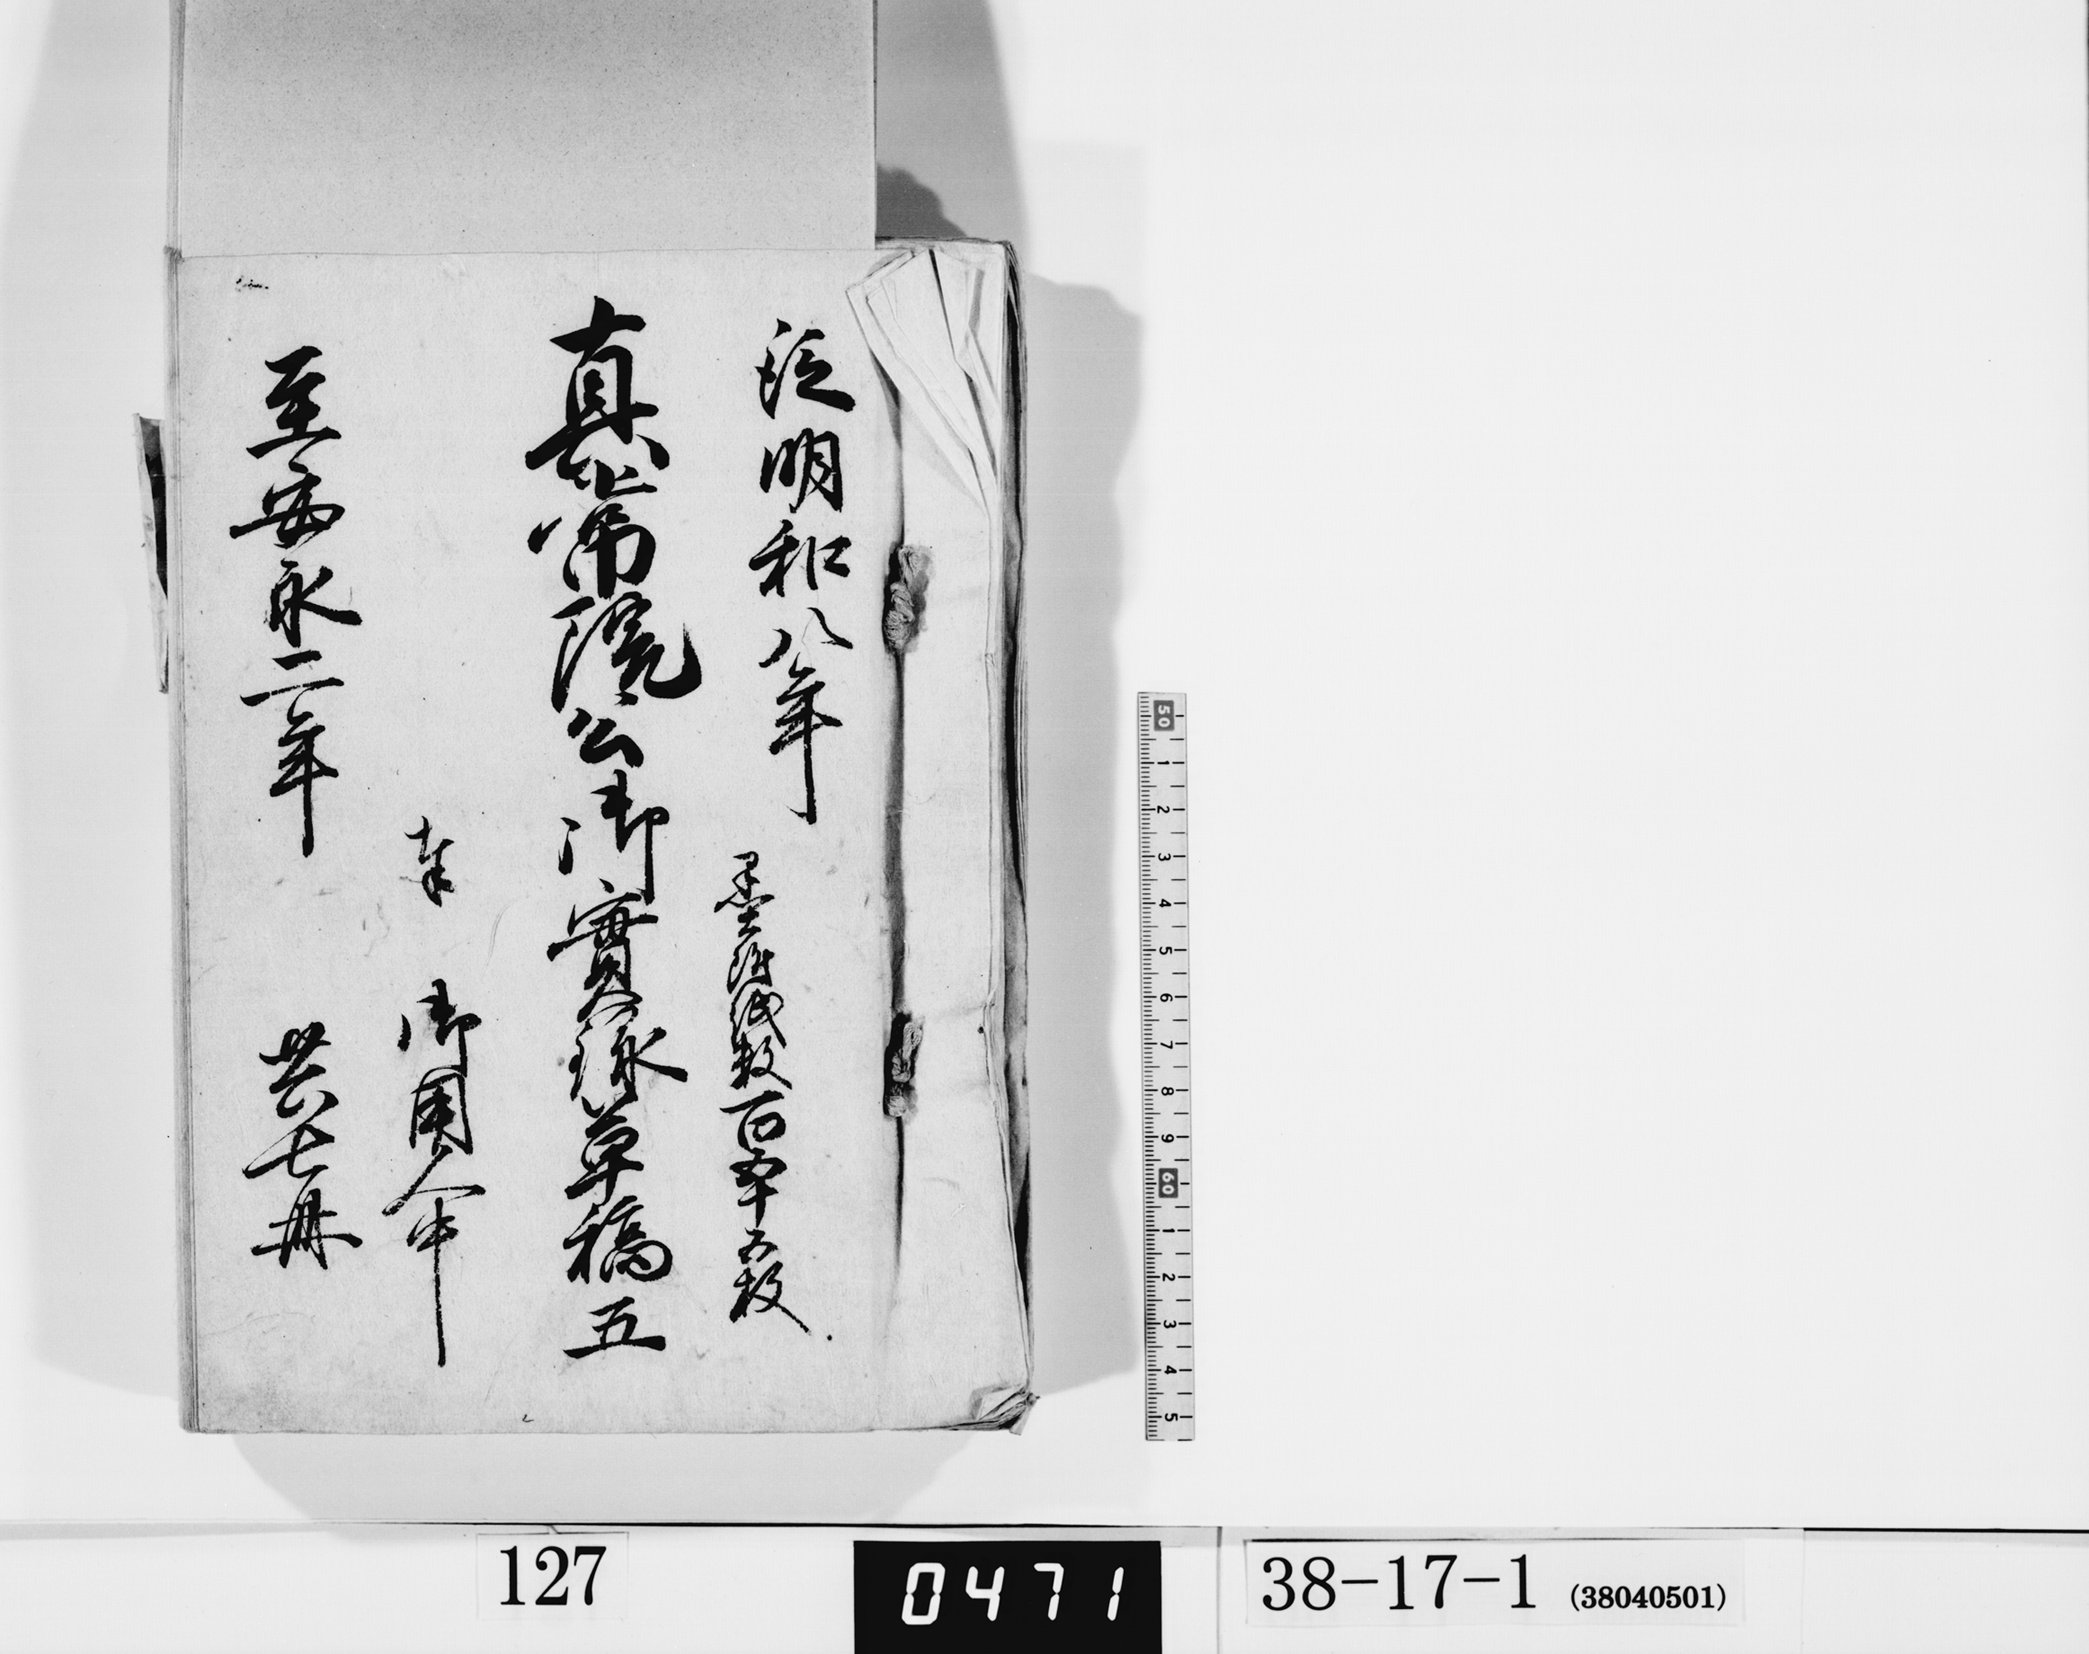 従明和八年
墨附紙数百五十五枚
真常院公御實録草稿五
奉
御用人中
至安永二年
共七冊
50 1 2 3 4 5 6 7 8 9 60 1 2 3 4 5
127
0471
38-17-1 (38040501)